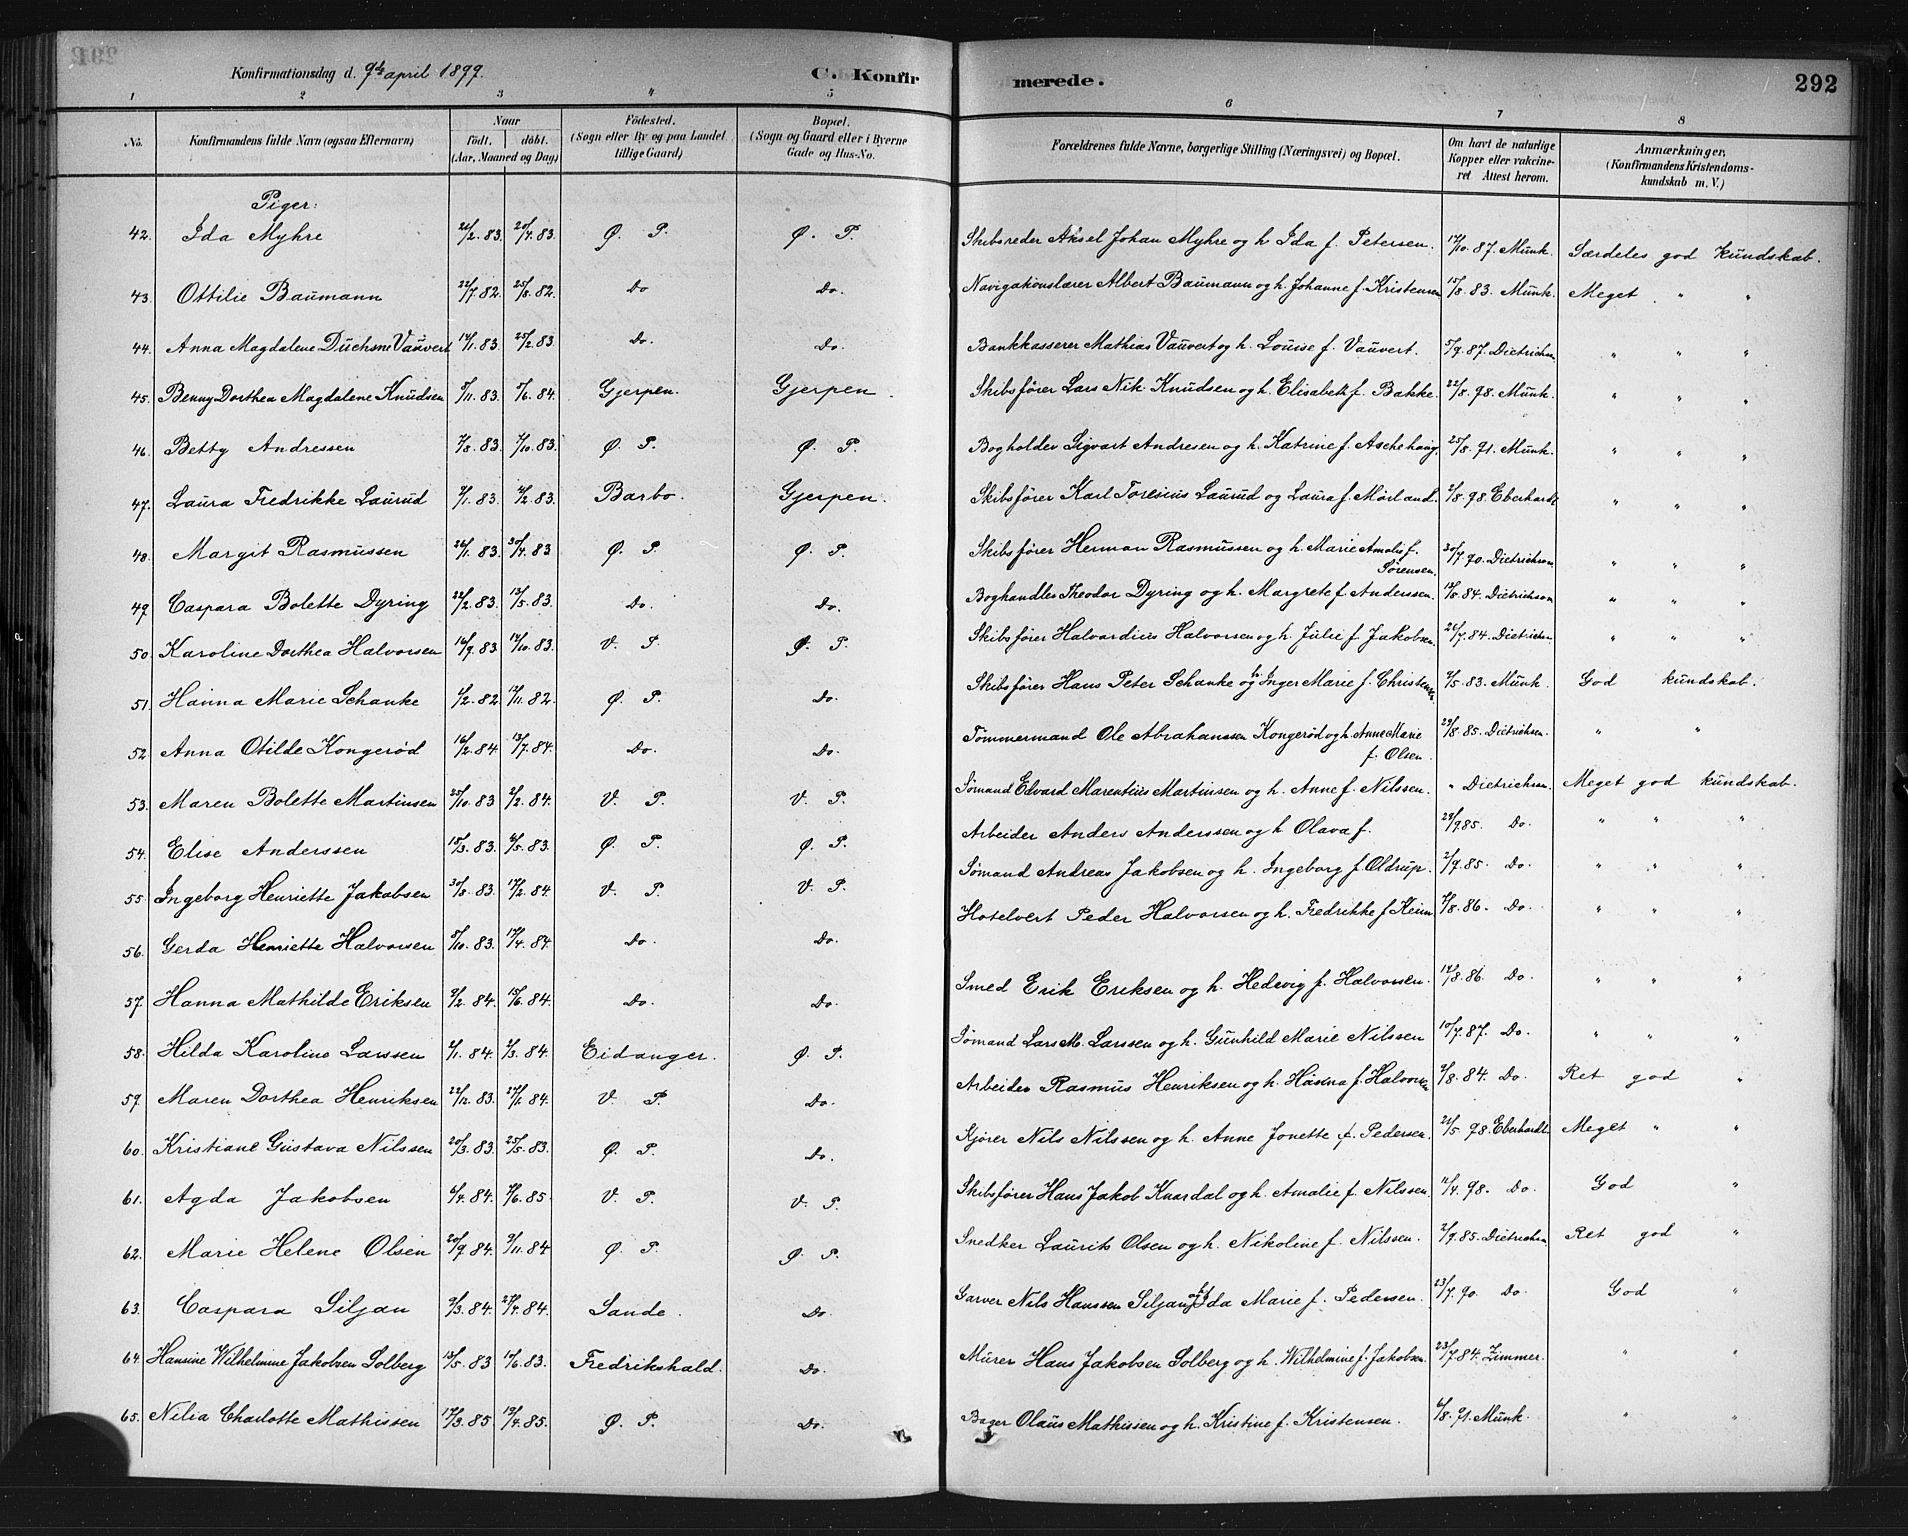 Konfirmationsdag d. 9de april 1899. C. Konfirmerede. 292
1 2 3 4 5 6 7 8
No. Konfirmandens fulde Navn (ogsaa Efternavn) Naar födt. döbt. (Aar, Maaned og Dag) Födested. (Sogn eller By og paa Landet tillige Gaard) Bopæl. (Sogn og Gaard eller i Byerne Gade og Hus-No. Forældrenes fulde Navne, borgerlige Stilling (Næringsvei) og Bopæl. Om havt de naturlige Kopper eller vakcineret Attest herom. Anmærkninger, (Konfirmandens Kristendomskundskab m. V.)
Piger:
42. Ida Myhre 83. 20/4. 83. Ø. P. Ø. P. Skibsreder Aksel Johan Myhre og h. Ida f. Petersen. 87. Munk. Særdeles god kundskab.
43. Ottilie Baumann 22/7. 82. 25/8. 82. Do Do. Navigationslærer Albert Baumann og h. Johanne f. Kristensen 15/8. 83. Munk. Meget " "
44. Anna Magdalene Duchsne Vauvert 14/1. 83. 25/2. 83. Do. Do. Bankkasserer Mathias Vauvert og h. Louise f. Vauvert. 5/9. 87. Dietrichsn " " "
45. Benny Dorthea Magdalene Knudsen 83. 84. Gjerpen. Gjerpen. Skibsfører Lars Nik. Knudsen og h. Elisabeth f. Bakke. 22/8. 98. Munk. " " "
46. Betty Andressen 83. 83. Ø. P. Ø. P. Bogholder Sigvart Andresen og h. Katrine f. Aschehoug. 25/8. 91. Munk. " " "
47. Laura Fredrikke Laurud 83. 83. Barbo. Gjerpen. Skibsfører Karl Toresius Laurud og Laura f. Mørland. 98. Eberhardt " " "
48. Margit Rasmussen 26/1. 83. 30/4. 83 Ø. P. Ø. P. Skibsfører Herman Rasmussen og h. Marie Amalie f. Sørensen. 30/7. 90. Dietrichson " " "
49. Caspara Bolette Dyring 22/2. 83. 13/5. 83. Do. Do. Boghandler Theodor Dyring og h. Margrete f. Anderssen. 84. Dietrichson " " "
50. Karoline Dorthea Halvorsen 16/9. 83. 83. V. P. Ø. P. Skibsfører Halvardius Halvorsen og h. Julie f. Jakobsen. 26/7. 84. Dietrichsn " " "
51. Hanna Marie Schanke 82. 82. Ø. P. Do. Skibsfører Hans Peter Schanke og h. Inger Marie f. Christensen 83. Munk. God kundskab.
52. Anna Otilde Kongerød 16/2. 84. 13/7. 84. Do. Do. Tømmermand Ole Abrahanssen Kongerød og h. Anne Marie f. Olsen. 85. Dietrichsen. " "
53. Maren Bolette Martinsen 25/10. 83 2/2. 84. V. P. V. P. Sømand Edvard Marentius Martinsen og h. Anne f. Nilssen. " Dietrichsn. Meget god kundskab.
54. Elise Anderssen 83. 83. Ø. P. Ø. P. Arbeider Anders Anderssen og h. Olava f. 85. Do " " "
55. Ingeborg Henriette Jakobsen 83. 84. V. P. V. P. Sømand Andreas Jakobsen og h. Ingeborg f. Oldrup. 2/9. 85. Do. " " "
56. Gerda Henriette Halvorsen 83. 84. Do. Do. Hotelvert Peder Halvorsen og h. Fredrikke f. Keim 86. Do. " " "
57. Hanna Mathilde Eriksen 9/2. 84. 15/6. 84. Do. Do. Smed Erik Eriksen og h. Hedevig f. Halvorsen. 86. Do " " "
58. Hilda Karoline Larssen 84. 84. Eidanger. Ø. P. Sømand Lars M. Larssen og h. Gunhild Marie Nilssen 10/7. 87. Do. " " "
59. Maren Dorthea Henriksen 22/12. 83. 84. V. P. Do. Arbeider Rasmus Henriksen og h. Hasina f. Halvorsen 84. Do. Ret god "
60. Kristiane Gustava Nilssen 20/3. 83. 25/5. 83. Ø. P. Do. Kjører Nils Nilssen og h. Anne Jonette f. Pedersen. 98. Eberhardt. Meget " "
61. Agda Jakobsen 6/4. 84. 85. V. P. V. P. Skibsfører Hans Jakob Knardal og h. Amalie f. Nilssen. 11/4. 98. Do. God "
62. Marie Helene Olsen 20/9. 84. 9/11. 84 Ø. P. Ø. P. Snedker Laurits Olsen og h. Nikoline f. Nilssen. 2/9. 85. Dietrichsn. Ret god "
63. Caspara Siljan 9/3. 84. 27/4. 84. Sande. Do. Garver Nils Hanssen Siljan og h. Ida Marie f. Pedersen. 23/7. 90. Do. God "
64. Hansine Wilhelmine Jakobsen Solberg 13/5. 83 83. Fredrikshald. Do. Murer Hans Jakobsen Solberg og h. Wilhelmine f. Jakobsn. 23/7. 84. Zimmer. " "
65. Nilia Charlotte Mathissen 85 85. Ø. P. Do. Bager Olaus Mathissen og h. Kristine f. Kristensen. 6/8. 91. Munk. " "